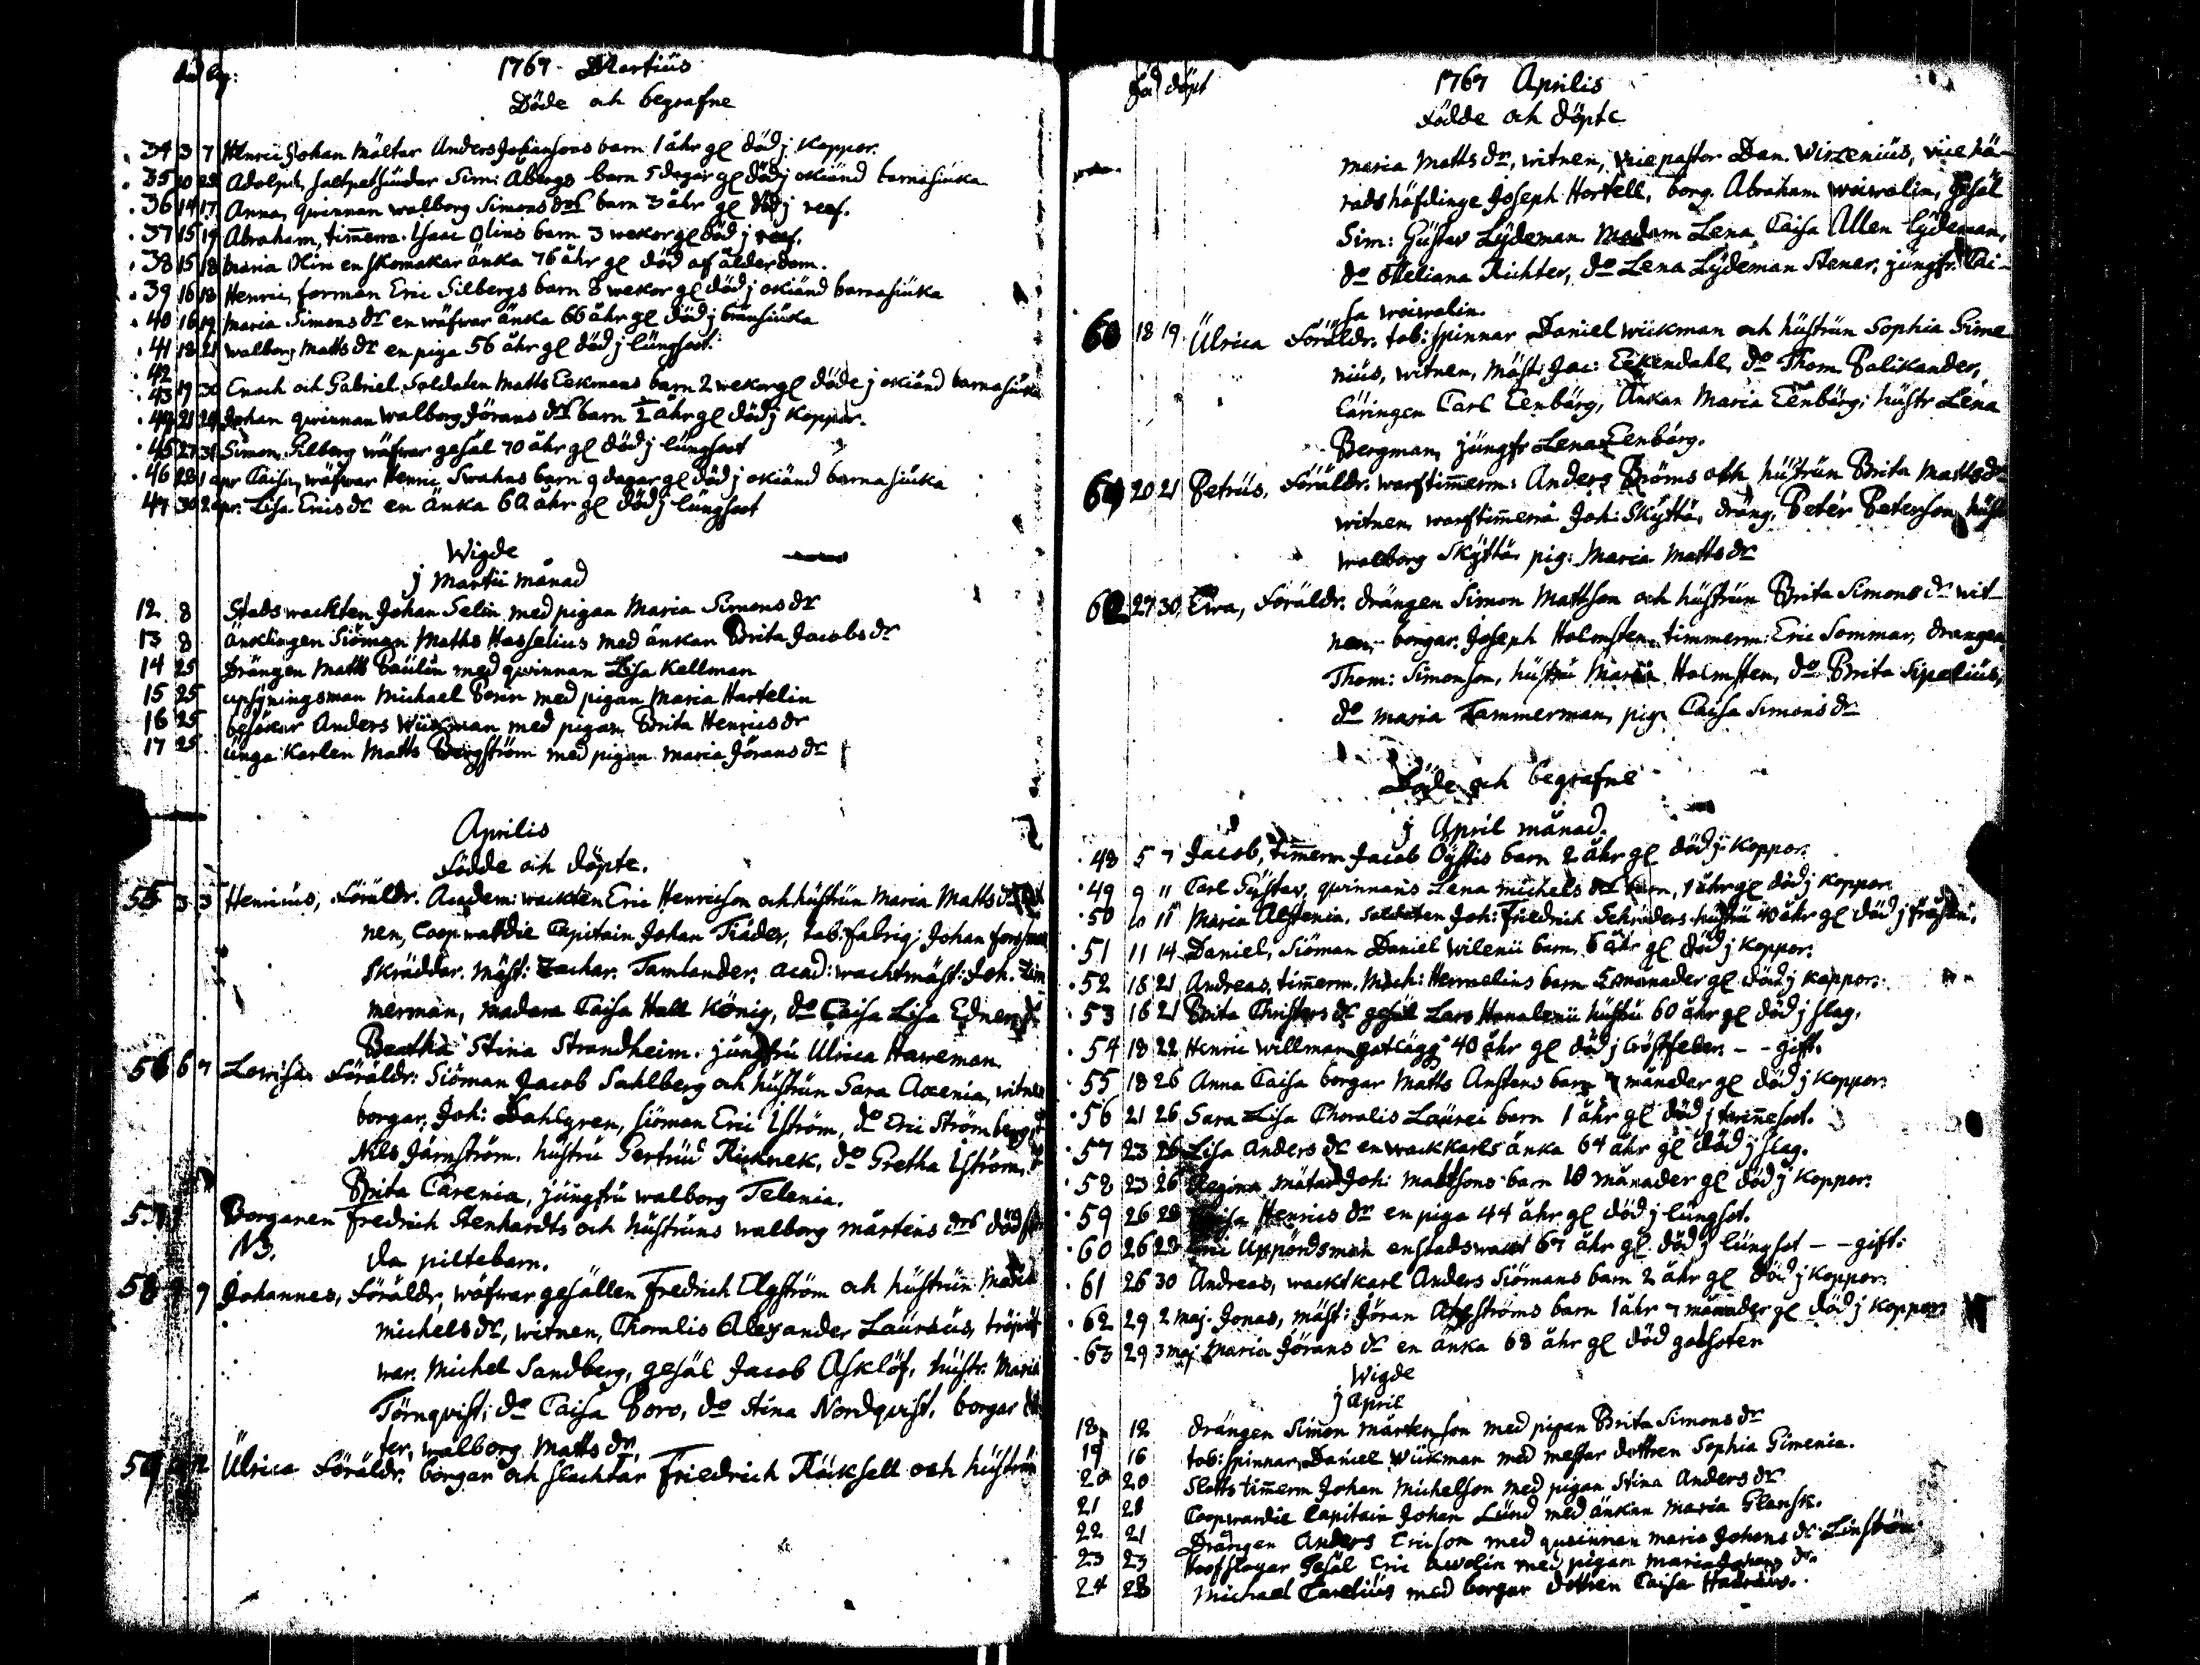 död beg:
1767 Martius
Döde och begrafne
34 3 7 Henric Johan Mältar Anders Johansons barn 1 åhr gl död j Koppor.
35 10 22 Adolph, saltpetsiuder Sim: Abergs barn 5 dagar gl död j okiänd barnasiuka
36 14 17 Anna, qwinnan walborg Simons drs barn 3 åhr gl död j reef.
37 15 19 Abraham, timerm. Isaac Olins barn 3 wekor gl död j reef.
38 15 18 Maria Olin en skomakar änka 76 åhr gl död af ålderdom.
39 16 18 Henric, forman Eric Silbergs barn 8 wekor gl död j okiänd barnasiuka
40 16 19 Maria Simons dr en wäfwar änka 66 åhr gl död j bränsiuka
41 18 21 walborg Matts dr en piga 56 åhr gl död j lüngsoot.
42
43 19 30 Enoch och Gabriel. Soldaten Matts Eekmans barn 2 wekor gl döde j okiänd barnasiuka
44 21 24 Johan qwinnan walborg Jörans drs barn ½ åhr gl död j Koppor.
45 27 31 Simon Silberg wäfwar gesäl 70 åhr gl död j lüngsoot
46 28 1 apr Caisa, wäfwar Henric Swahns barn 9 dagar gl död j okiänd barnasiuka
47 30 2 apr. Lisa Erics dr en änka 60 åhr gl död j lüngsoot
Wigde
j Martii månad
12 8 Stadswackten Johan Selin med pigan Maria Simons dr
13 8 änklingen Siöman Maths Hasselius med änkan Brita Jacobs dr
14 25 Drängen Matts Paulin med qwinnan Lisa Kellman
15 25 upsyningsman Michael Bonn med pigan Maria Hartelin
16 25 besökar Anders Wükman med pigan Brita Henrics dr
17 25 ünga Karlen Matts Bergström med pigan Maria Jörans dr
Aprilis
Födde och döpte.
55 3 3 Henricus, Föräldr. Academ: wackten Eric Henricson och hüstrun Maria Matts dr
nen, Coopwardie Capitain Johan Träder, tob: fabriq: Johan forssman
Skräddar. Mäst: Zachar. Tamlander, acad: wachtmäst: Joh. Zim
merman, madam Caisa Hall König, do Caisa Lisa Edner, do
Beatha Stina Strandheim. jungfru Ulrica Haweman
56 6 7 Lowisa Föräldr: Siöman Jacob Sahlberg och hüstrun Sara Axenia, witnen
borgar, Joh: Dahlgren, siöman Eric Iström, do Eric Strömberg, do
Nils Järnström. hüstru Gertrud Ricknek, do Gretha Iström,
Brita Carenia, jüngfru walborg Telenia.
57 Borgaren Fredrich Stenhardts och hüstruns walborg mårtens drs dödföd
NB. da piltebarn.
58 7 9 Johannes, Föräldr, wäfwar gesällen Fredrich Elgström och hüstrun Maria
michels dr, witnen, Choralis Alexander Lauraeus, tröjwäf
war. Michel Sandberg, gesäl Jacob Asklöf, hüstr. Maria
Törnqvist; do Caisa Boro, do Stina Nordqvist, borgar dot
ter, walborg Matts dr.
59 12 Ulrica Föräldr. borgar och slachtar Friedrich Räiksell och hüstrun
föd döpt
1767 Aprilis
Födde och döpte
maria Matts dr, witnen, Vice pastor Dan. Wirzenius, vice hä-
radshöfdinge Joseph Hortell, borg. Abraham woiwalin, Gesäl
Sim: Gustav Lydeman. Madam Lena Caisa Allen Lydeman,
do Eleliana Richter, do Lena Lydeman Stener, jüngfr. Cai-
sa woiwalin.
60 18 19 Ulrica Föräldr. tob: spinnar Daniel wükman och hüstrun Sophia Gime
nius, witnen, mäst: Jac: Eekendahl, do Thom Palikander,
Läringen Carl Eenbärg, Änkan Maria Eenbärg; hüstr Lena
Bergman, jüngfr Lena Eenbärg.
61 20 21 Petrus, Föräldr. warftimmerm: Anders Bröms och hüstrun Brita Matts dr
witnen, warftimerm Joh: Skyttä, dräng, Peter Peterson, hüstr
walborg Skyttä, pig: Maria Matts dr
62 27 30 Ewa, Föräldr. drängen Simon Mattson och hüstrun Brita Simons dr wit-
nen, borgar. Joseph Holmsten, timmerm: Eric Sommar, drangen
Thom: Simonson, hüstru Maria Holmsten, do Brita Sipelius,
do maria Tammerman, pig. Caisa Simons dr
Döde och begrafne
j April månad.
48 5 7 Jacob, timerm Jacob Oystis barn 2 åhr gl död j Koppor.
49 9 11 Carl Gustav, qwinnans Lena michels drs barn, 1 åhr gl död j Koppor
50 10 11 Maria Alstenia, Soldaten Joh: Friedrich Schröders hüstru 40 åhr gl död j frossan.
51 11 14 Daniel, Siöman Daniel Wilenii barn, 6 åhr gl död j Koppor.
52 18 21 Andreas, timerm. Mich: Hermelins barn 5 månader gl död j Koppor.
53 16 21 Brita Christers dr gesäl Lars Honalenii hüstru 60 åhr gl död j slag.
54 18 22 Henric Willman gatlägg 40 åhr gl död j bröstfeber. - - gift.
55 18 26 Anna Caisa borgar Matts Anstens barn 7 månder gl död j Koppor.
56 21 26 Sara Lisa Choralis Laurei barn 1 åhr gl död j twinesoot.
57 23 26 Lisa Anders dr en wackkarls änka 64 åhr gl död j slag.
58 23 26 Regina mätar Joh: Mattsons barn 10 månader gl död j Koppor.
59 26 28 Henrics dr en piga 44 åhr gl död j lüngsot.
60 26 29 Eric Uppördsman en stadswact 67 åhr gl död j lüngsot - - gift:
61 26 30 Andreas, wacktkarl Anders Siömans barn 2 åhr gl död j Koppor.
62 29 2 maj. Jonas, mäst: Jöran ströms barn 1 åhr 7 månader gl död j Koppor
63 29 3 maj Maria Jörans dr en änka 68 åhr gl död
Wigde
j April
18 12 drängen Simon mårtenson med pigan Brita Simons dr
19 16 tob: spinnar, Daniel Wükman med mestar dottren Sophia Gimenia.
20 20 Slotts timerm Johan Michelson med pigan Stina Anders dr
21 21 Coopwardie Capitain Johan Lund med änkan Maria Glansk.
22 21 Drängen Anders Ericson med qwinnan maria Johans dr Linström
23 23 Hoofslagar Gesäl Eric Awolin med pigan Maria Johans dr
24 28 Michael Carelius med borgar dottren Caisa